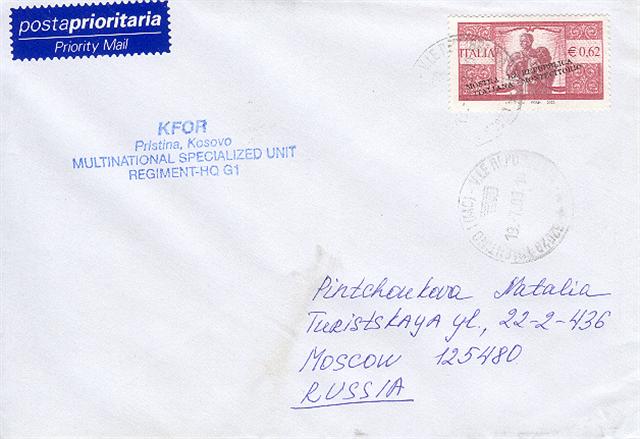 postaprioritaria
Priority Mail
ITALIA
€ 0,62
MOSTRA LA REPUBBLICA
ITALIANA MONTECITORIO
KFOR
Pristina, Kosovo
MULTINATIONAL SPECIALIZED UNIT
REGIMENT-HQ G1
Pintchoukova Natalia
Turistskaya yl., 22-2-436
Moscow 125480
RUSSIA